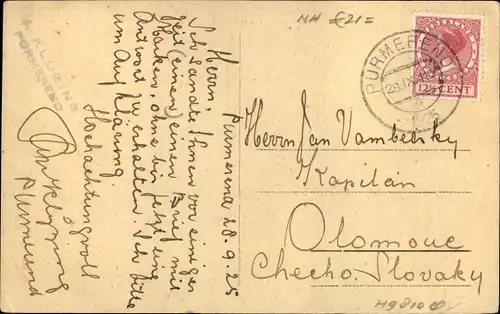 HH £21=
A. KLUZING
PURMEREND
NEDERLAND
12½ CENT
PURMEREND
Purmerend 28.9.25
Herrn,
Ich sandte Ihnen vor einiger
Zeit (einen) einen Brief mit
Marken, ohne bis jetzt eine
Antwort zu erhalten. Ich bitte
um Aufklärung.
Hochachtungsvoll
Purmerend
Herrn Jan Vambelsky
Kapitän
Olomouc
Checho-Slovaky